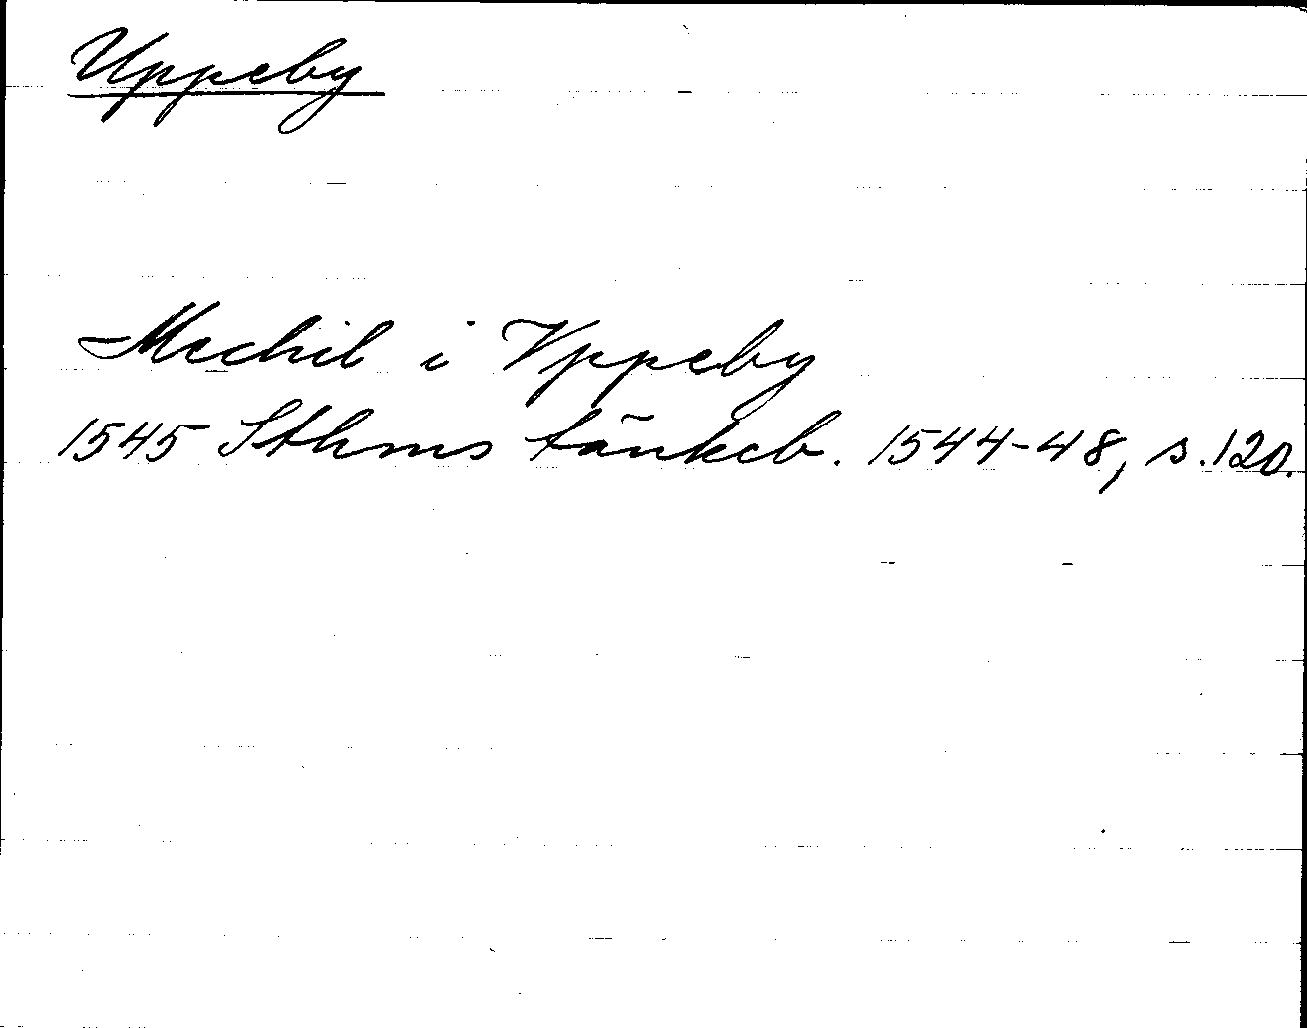 Uppeby
Mechil i Vppeby
1545 Sthms tänkeb. 1544-48, s. 120.